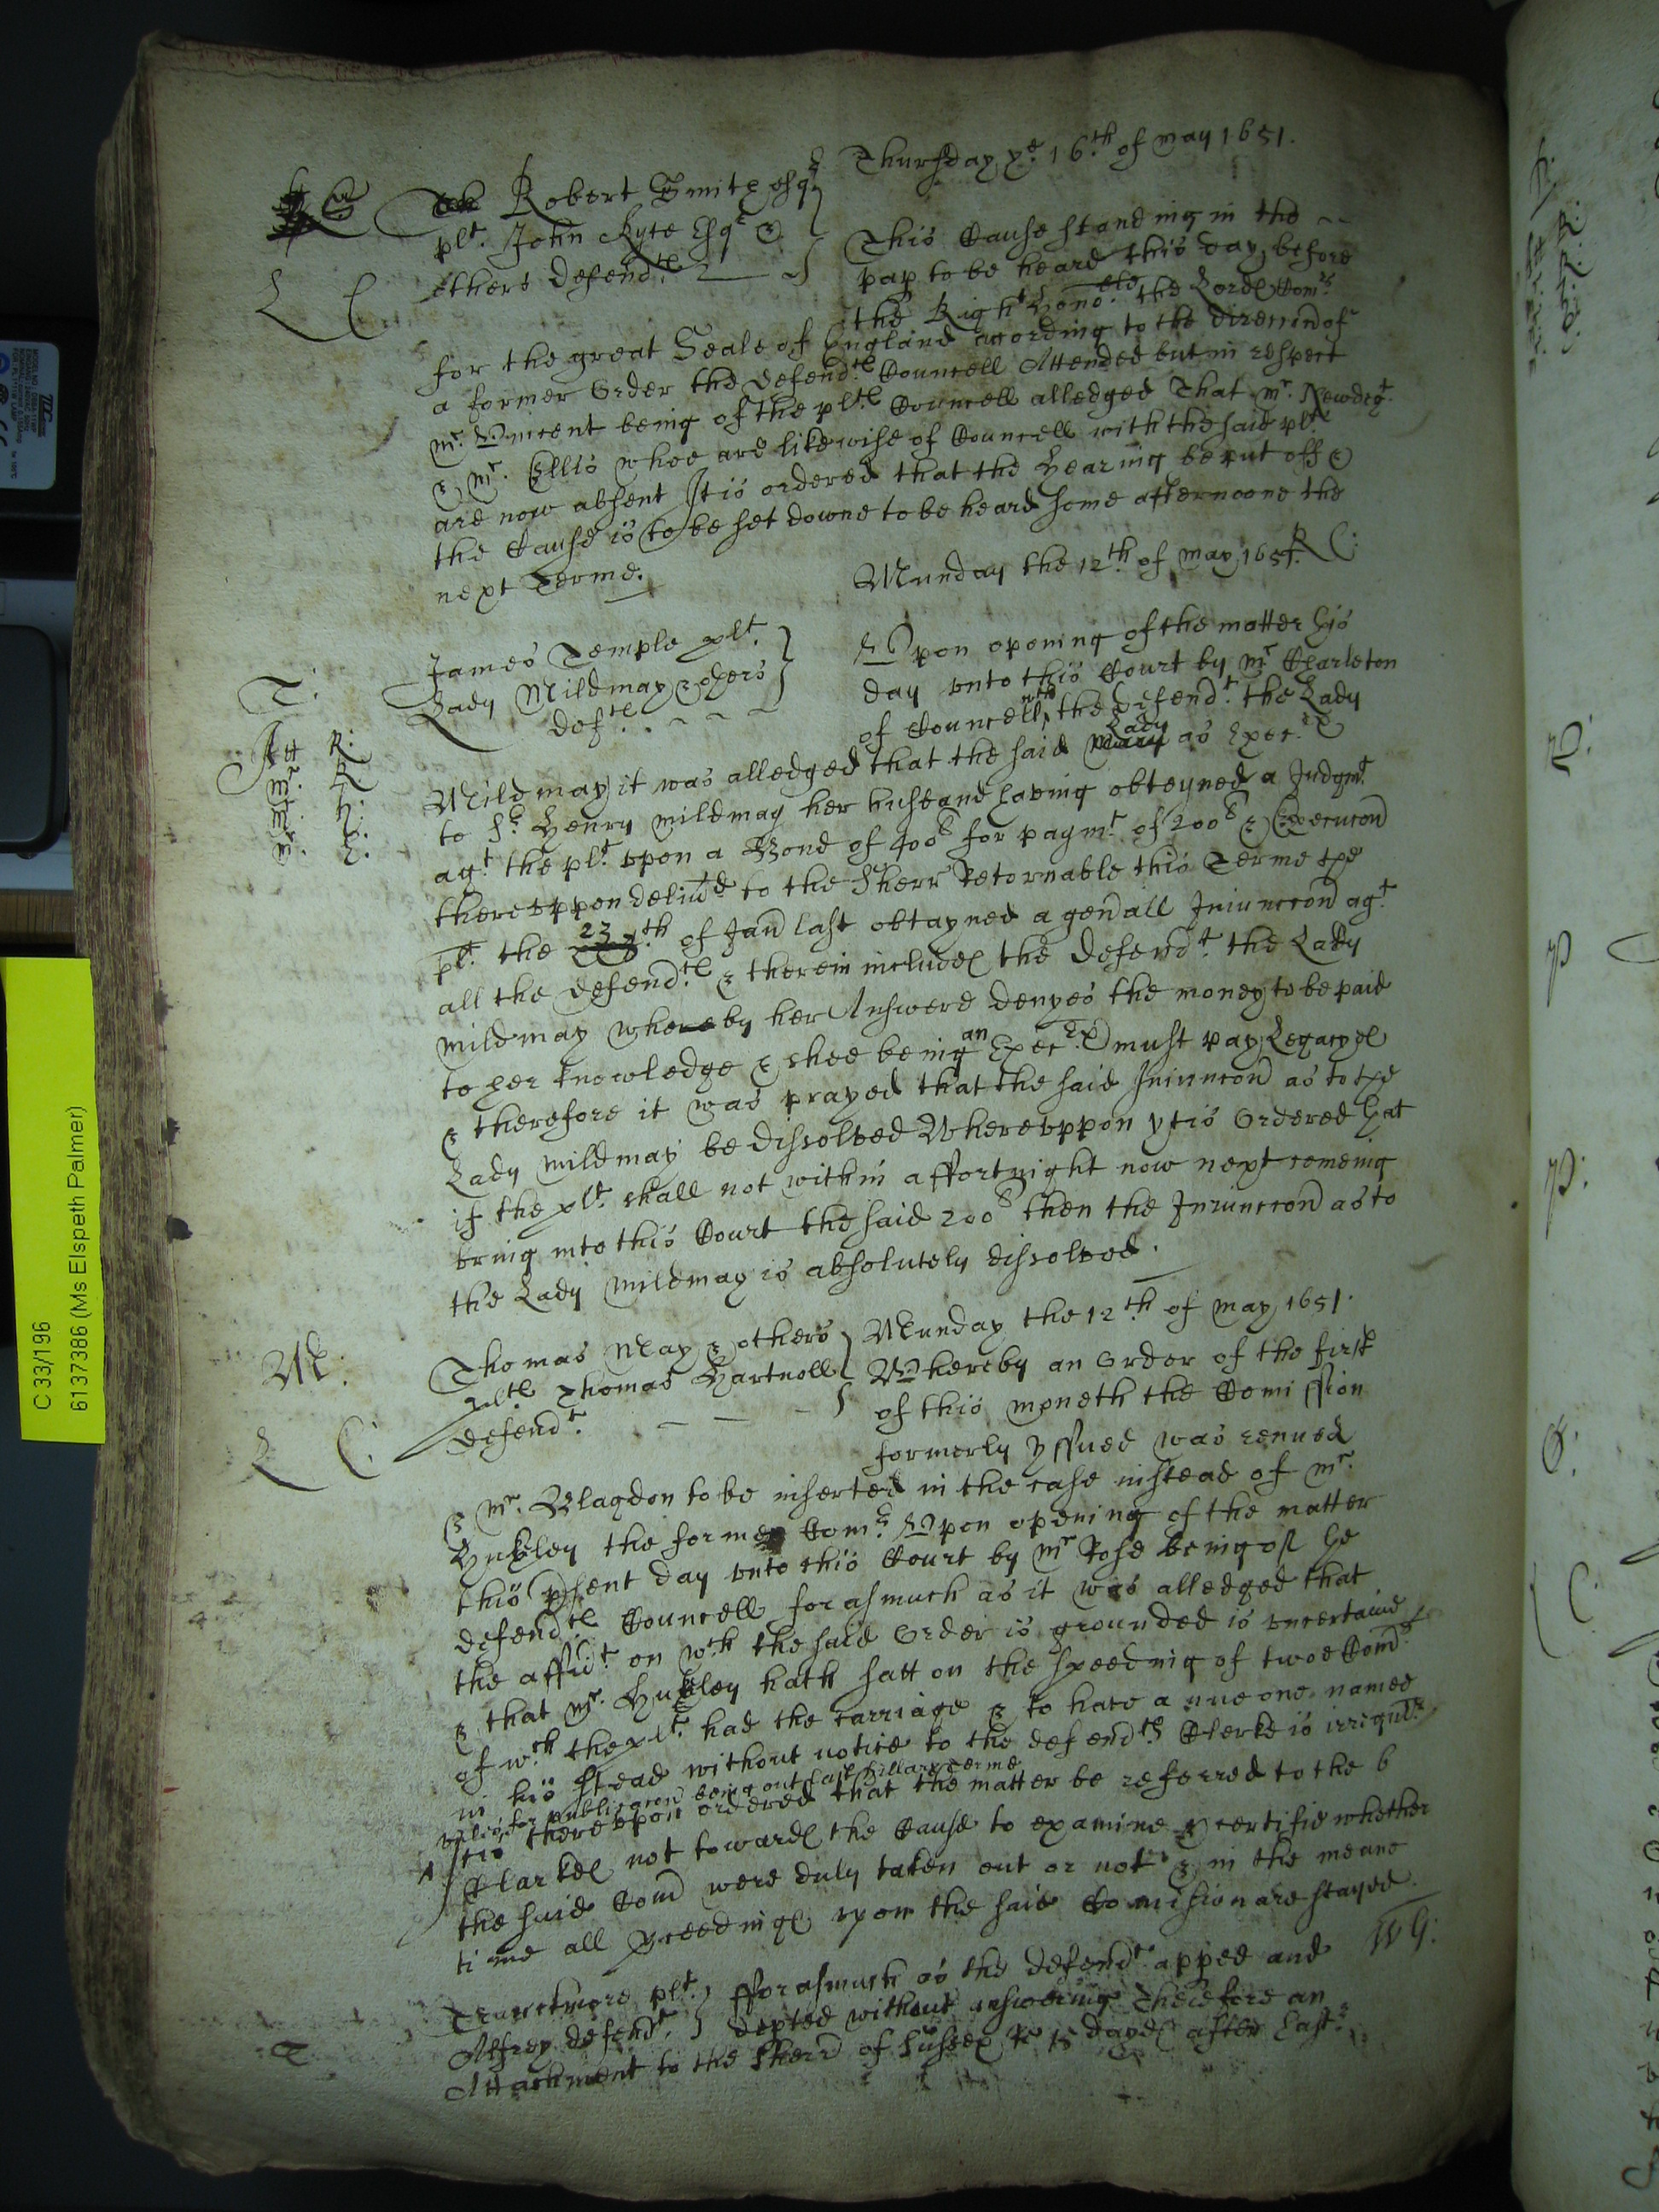 Thursday ye. 16th of may 1651.
S
Robert Smith esqr
plt. John Kyte Esqr &
others defendts
L C
This Cause standing in the
pap to be heard this day before
the Right Hono:ble the Lords Comrs
for the great Seale of England acording to the direccon of
a former Order the defendts Councell Attended but in respect
mr. Vincent being of the plts Councell alledged That mr. Newdigt
& mr. Ellis whoe are likewise of Councell with the said plt
are now absent It is ordered that the Hearing be put off &
the Cause is to be set downe to be heard some afternoone the
next Terme.
RC:
Munday the 12th of may 1651.
T:
James Temple plt.
Lady Mildmay & others
defts.
Att R:
mr. R
mr. H:
mr. E:
Vpon opening of the matter this
day vnto this Court by mr Charleton
of Councell wth the defendt. the Lady
Mildmay it was alledged that the said Lady as Exec:rx
to Sr. Henry mildmay her husband having obteyned a Judgmt
agt. the plt. vpon a Bond of 400l for paymt. of 200l & Execucon
therevppon deliud to the Sherr Retornable this Terme the
plt. the 23th of Jan last obtayned a genall Iniunccon agt
all the defendts & therein includes the defendt. the Lady
mildmay who by her Answere denyes the money to be paid
to her knowledge & shee being an Execrx must pay Legacyes
& therefore it was prayed that the said Iniunccon as to the
Lady mildmay be dissolved Wherevppon ytis Ordered that
if the plt. shall not within a ffortnight now next comeing
bring into this Court the said 200l then the Iniunccon as to
the Lady mildmay is absolutely dissolved.
Munday the 12th of may 1651.
M:
Thomas May & others
plts Thomas Hartnoll
defendt.
L C:
Whereby an Order of the first
of this moneth the Comission
formerly yssued was renued
& mr. Blagdon to be inserted in the case insteas of mr.
Huckley the former Comr Vpon opening of the matter
this psent day vnto this Court by mr Rose being of the
defendts Councell forasmuch as it was alledged that
the affidt. on wch the said Order is grounded is vncertaine
& that mr. Huckley hath satt on the speeding of twoe Comrs
of wch the plt. had the carriage & to have a nue one named
in his stead without notice to the defendts Clerke is irregulr
publicacon being out last hillary terme
Itis therevpon ordered that the matter be referred to the 6
Clarkes not towards the Cause to examine & certifie whether
the said Com were duly taken out or not & in the meane
time all pceedings vpon the said Comission are stayed.
WG:
T
plt.
Alfrey defendt.
fforasmuch as the defendt. apped and
depted without answering Therefore an
Attachment to the Sherr of Sussex Re 15 dayes after East:
C 33/196
6137386 (Ms Elspeth Palmer)